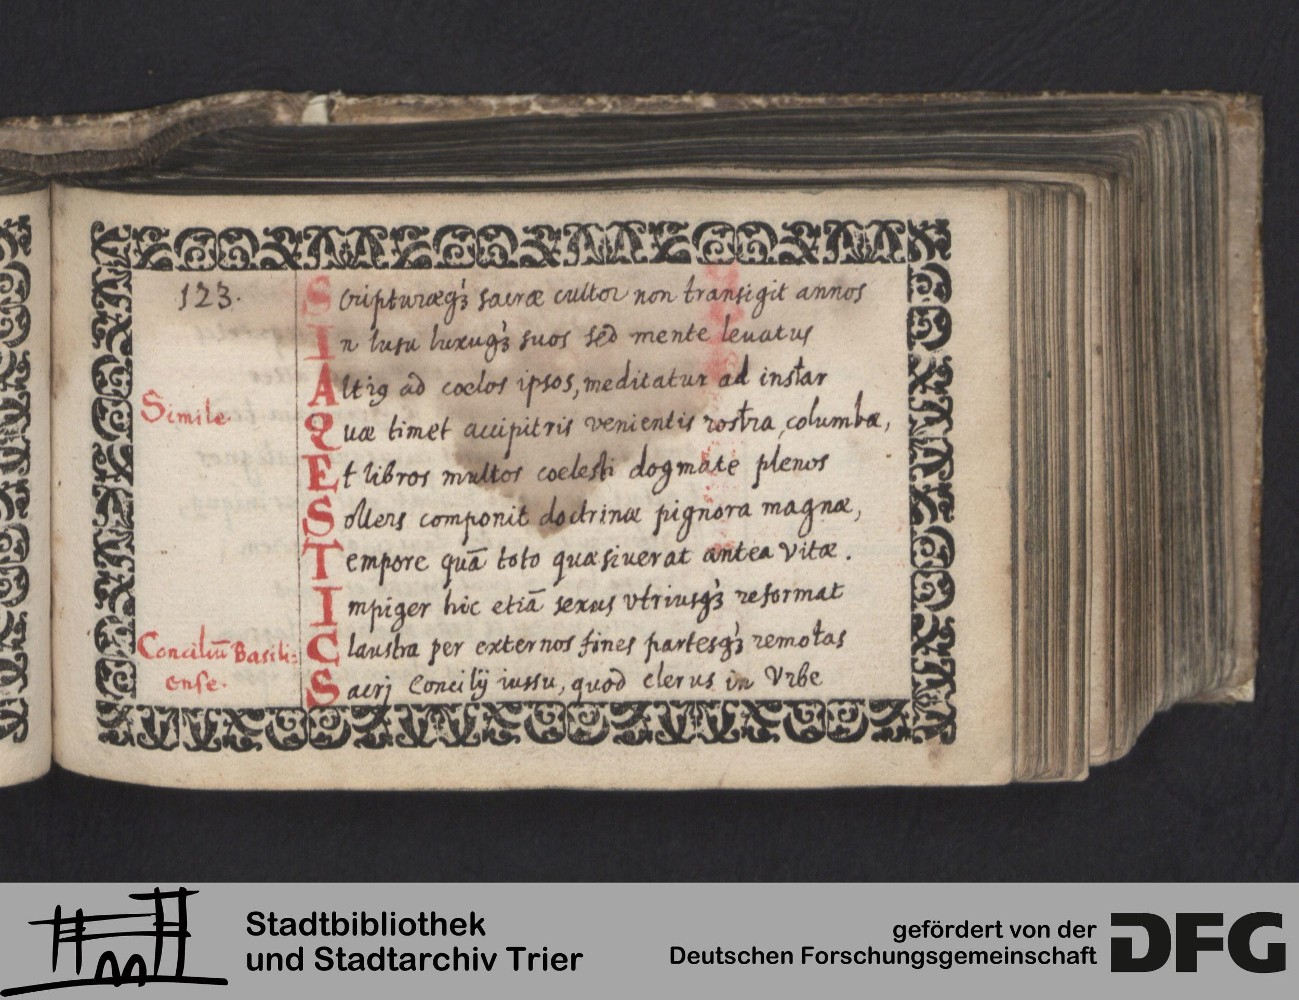 123.
Scripturæq₃ sacræ cultor non transigit annos
In lusu luxuq₃ suos sed mente leuatus
Altiꝰ ad cœlos ipsos, meditatur ad instar
Simile.
Quæ timet accipitris venientis rostra columbæ,
Et libros multos coelesti dogmate plenos
Sollers componit doctrinæ pignora magnæ,
Tempore quā toto quæsiuerat antea vitæ.
Impiger hic etiā sexus vtriusq₃ reformat
Conciliū Basili=
ense.
Claustra per externos fines partesq₃ remotas
Sacrj Concilij iussu, quod clerus in Vrbe
Stadtbibliothek
und Stadtarchiv Trier
gefördert von der
Deutschen Forschungsgemeinschaft
DFG